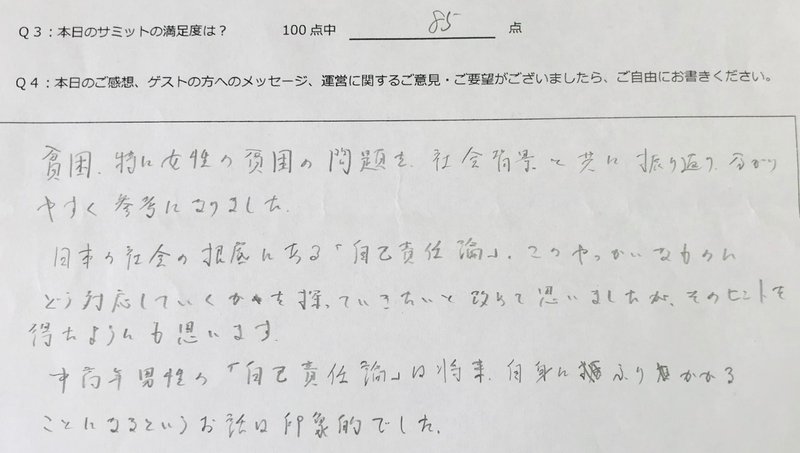 Q3：本日のサミットの満足度は？ 100点中 85 点
Q4：本日のご感想、ゲストの方へのメッセージ、運営に関するご意見・ご要望がございましたら、ご自由にお書きください。
貧困、特に女性の貧困の問題を、社会背景と共に振り返り、分かり
やすく参考になりました。
日本の社会の根底にある「自己責任論」。このやっかいなものに
どう対応していくかを探っていきたいと改めて思いましたが、そのヒントを
得たようにも思います。
中高年男性の「自己責任論」は将来、自身にふりかかる
ことになるというお話は印象的でした。